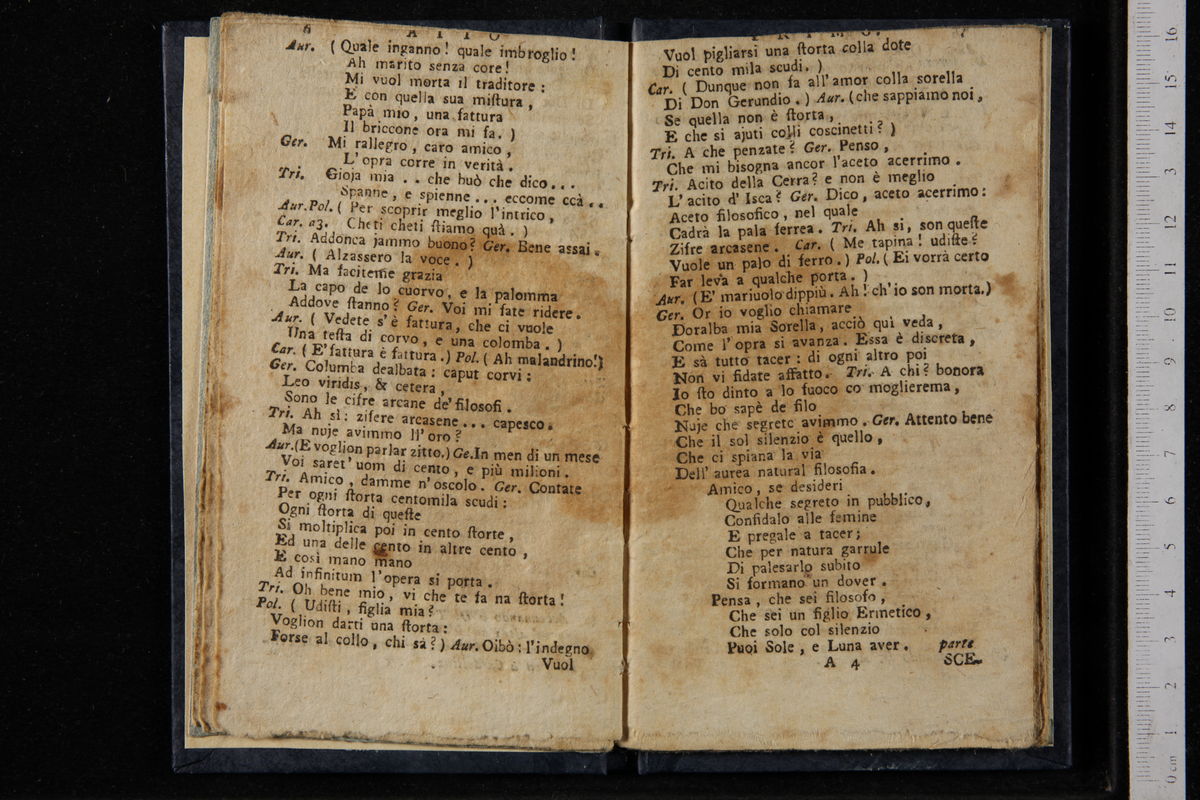 6 ATTO
Aur. (Quale inganno! quale imbroglio!
Ah marito senza core!
Mi vuol morta il traditore:
E con quella sua miſtura,
Papà mio, una fattura
Il briccone ora mi fa.)
Ger. Mi rallegro, caro amico,
L'opra corre in verità.
Tri. Gioja mia .. che buò che dico...
Spanne, e spienne... eccome ccà..
Aur.Pol. (Per scoprir meglio l'intrico,
Car. a3. Cheti cheti ſtiamo quà.)
Tri. Addonca jammo buono? Ger. Bene assai.
Aur. (Alzassero la voce.)
Tri. Ma faciteme grazia
La capo de lo cuorvo, e la palomma
Addove ſtanno? Ger. Voi mi fate ridere.
Aur. (Vedete s'è fattura, che ci vuole
Una teſta di corvo, e una colomba.)
Car. (E' fattura è fattura.) Pol. (Ah malandrino!)
Ger. Columba dealbata: caput corvi:
Leo viridis, & cetera,
Sono le cifre arcane de' filosofi.
Tri. Ah sì: zifere arcasene... capesco.
Ma nuje avimmo ll'oro?
Aur.(E voglion parlar zitto.) Ge.In men di un mese
Voi saret' uom di cento, e più milioni.
Tri. Amico, damme n'oscolo. Ger. Contate
Per ogni ſtorta centomila scudi:
Ogni ſtorta di queſte
Si moltiplica poi in cento ſtorte,
Ed una delle cento in altre cento,
E così mano mano
Ad infinitum l'opera si porta.
Tri. Oh bene mio, vi che te fa na ſtorta!
Pol. (Udiſti, figlia mia?
Voglion darti una ſtorta:
Forse al collo, chi sà?) Aur. Oibò: l'indegno
Vuol
PRIMO. 7
Vuol pigliarsi una ſtorta colla dote
Di cento mila scudi.)
Car. (Dunque non fa all'amor colla sorella
Di Don Gerundio.) Aur. (che sappiamo noi,
Se quella non è ſtorta,
E che si ajuti colli coscinetti?)
Tri. A che penzate? Ger. Penso,
Che mi bisogna ancor l'aceto acerrimo.
Tri. Acito della Cerra? e non è meglio
L'acito d'Isca? Ger. Dico, aceto acerrimo:
Aceto filosofico, nel quale
Cadrà la pala ferrea. Tri. Ah si, son queſte
Zifre arcasene. Car. (Me tapina! udiſte?
Vuole un palo di ferro.) Pol. (Ei vorrà certo
Far leva a qualche porta.)
Aur. (E' mariuolo dippiù. Ah! ch'io son morta.)
Ger. Or io voglio chiamare
Doralba mia Sorella, acciò quì veda,
Come l'opra si avanza. Essa è discreta,
E sà tutto tacer: di ogni altro poi
Non vi fidate affatto. Tri. A chi? bonora
Io ſto dinto a lo fuoco co moglierema,
Che bo sapè de filo
Nuje che segrete avimmo. Ger. Attento bene
Che il sol silenzio è quello,
Che ci spiana la via
Dell'aurea natural filosofia.
Amico, se desideri
Qualche segreto in pubblico,
Confidalo alle femine
E pregale a tacer;
Che per natura garrule
Di palesarlo subito
Si formano un dover.
Pensa, che sei filosofo,
Che sei un figlio Ermetico,
Che solo col silenzio
Puoi Sole, e Luna aver. parte
A 4 SCE-
0 cm 1 2 3 4 5 6 7 8 9 10 11 12 13 14 15 16